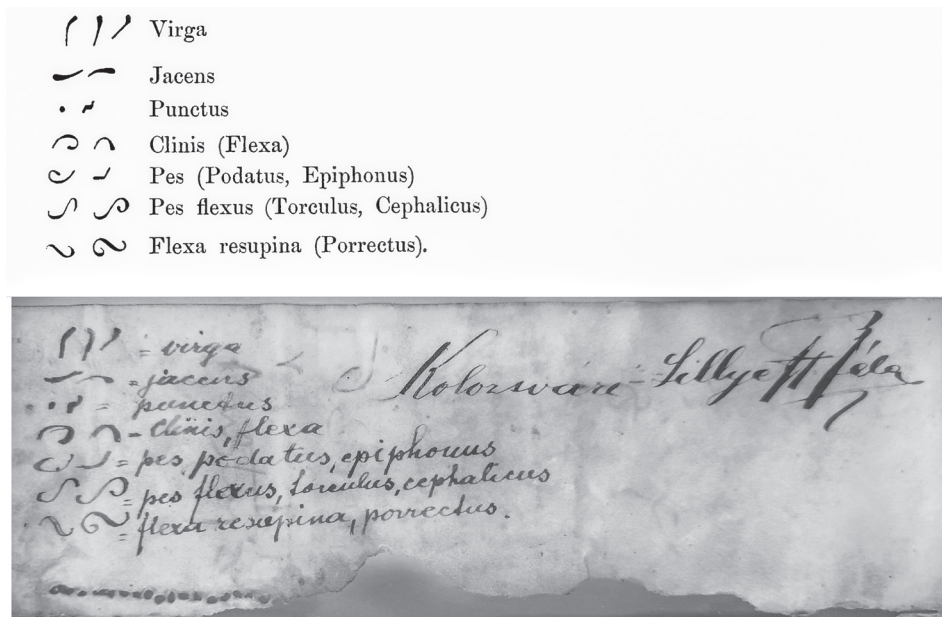 Virga
Jacens
Punctus
Clinis (Flexa)
Pes (Podatus, Epiphonus)
Pes flexus (Torculus, Cephalicus)
Flexa resupina (Porrectus).
= virga
= jacens
= punctus
- Clinis, flexa
= pes, podatus, epiphonus
= pes flexus, torculus, cephalicus
= flexa resupina, porrectus.
Kolozsvári - Béla